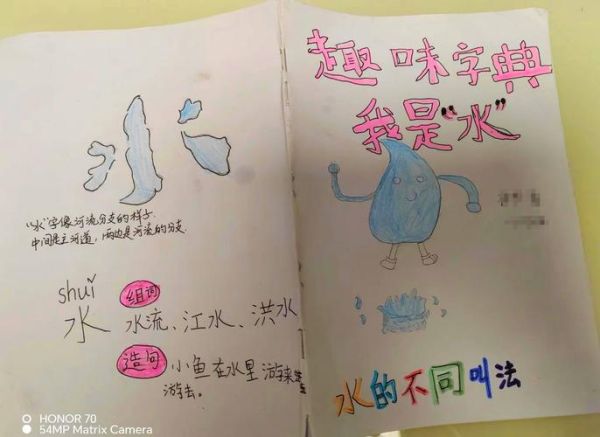 "水"字像河流分支的样子.
中间是主河道,两边是河流的分支.
shuǐ
水
组词
水流、江水、洪水
造句
小鱼在水里游来
游去。
趣味字典
我是"水"
水的不同叫法
HONOR 70
54MP Matrix Camera